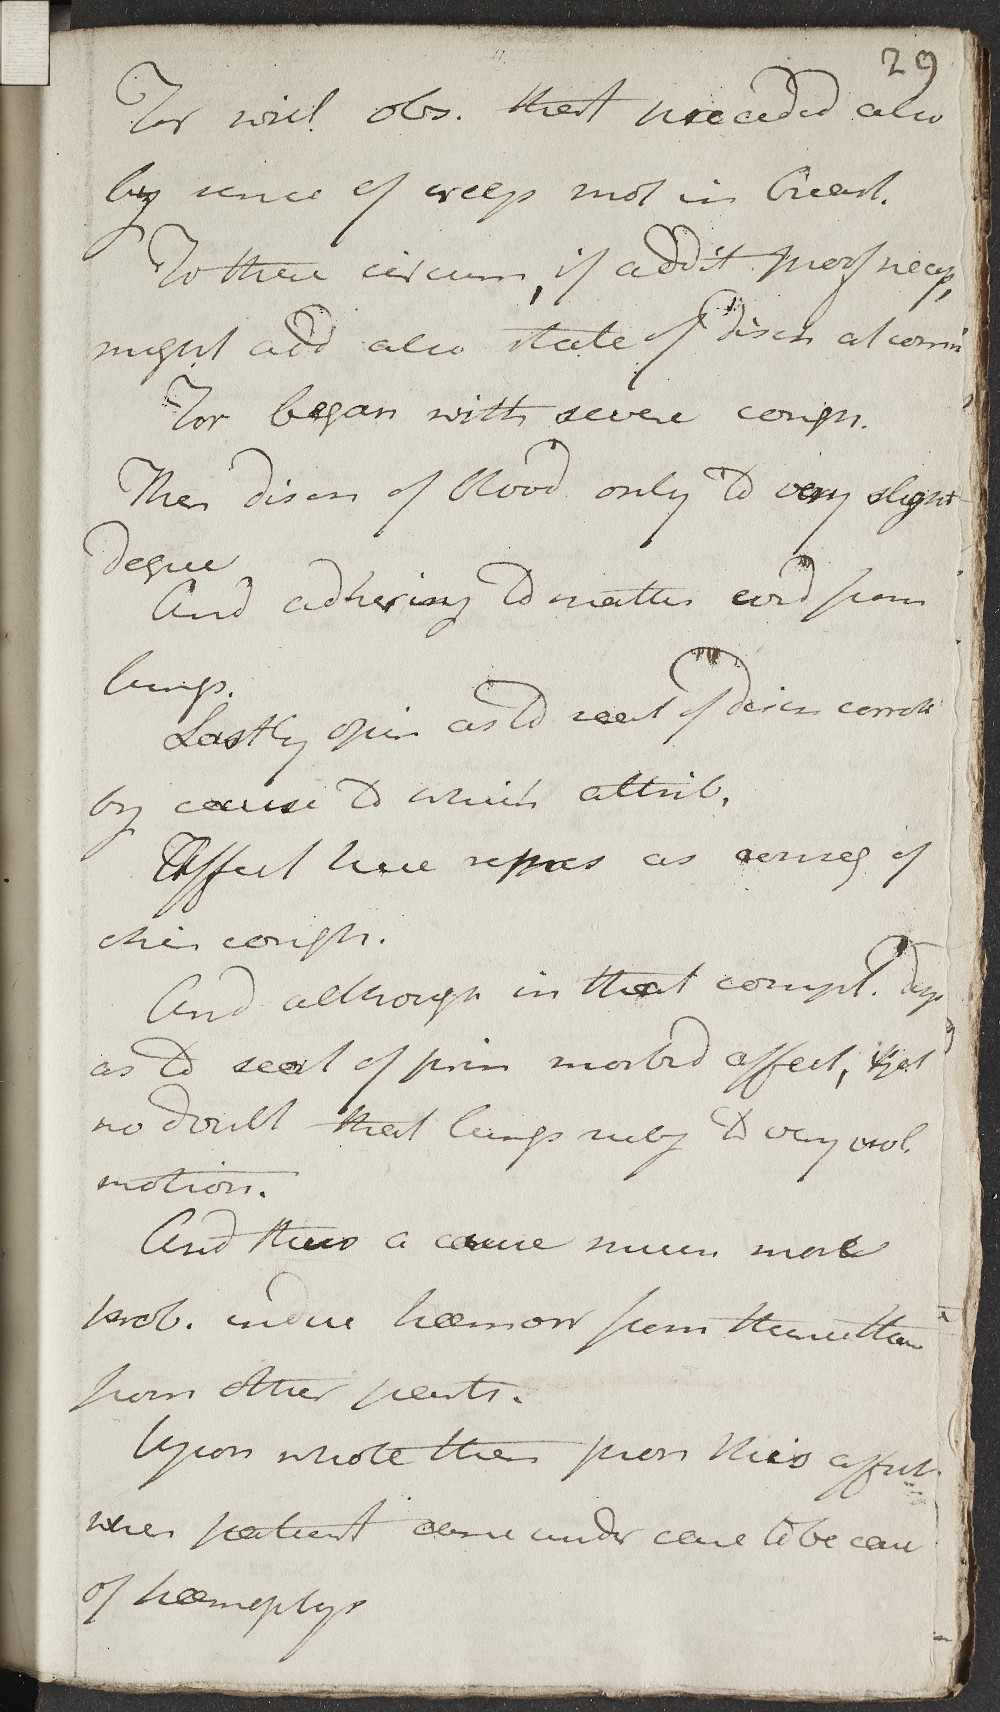 29
For will obs. that preceded also
by sence of creep mot in breast.
To these circum, if addit proof necess,
might add also state of disch at comm
For began with severe cough.
Then disch of blood only to very slight
degree
And adhering to matter coed from
lungs.
Lastly opin as to seat of disch corrob
by cause to which attrib.
Affect here repres as conseq of
chin cough.
And although in that compl.
as to seat of prim morbid affect, yet
no doubt that lungs subj to very viol
motion.
And thus a cause much more
prob. induce haemorr from these than
from other parts.
Upon whole then pron this affect
when patient came under care to be case
of haemoptys